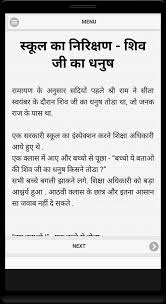 MENU
स्कूल का निरिक्षण - शिव
जी का धनुष
रामायण के अनुसार सदियों पहले श्री राम ने सीता
स्वयंबर के दौरान शिव जी का धनुष तोडा था, जो जनक
राज के पास था.
एक सरकारी स्कूल का इंस्पेक्शन करने शिक्षा अधिकारी
आये हुए थे .
एक क्लास में आए और बच्चो से पूछा - "बच्चो ये बताओ
की शिव जी का धनुष किसने तोडा ?"
सभी बच्चे बगली झाकने लगे. शिक्षा अधिकारी को बड़ा
आश्चर्य हुआ . आठवी क्लास के छात्र और इतना आसान
सा जवाब नहीं दे सकते .
NEXT